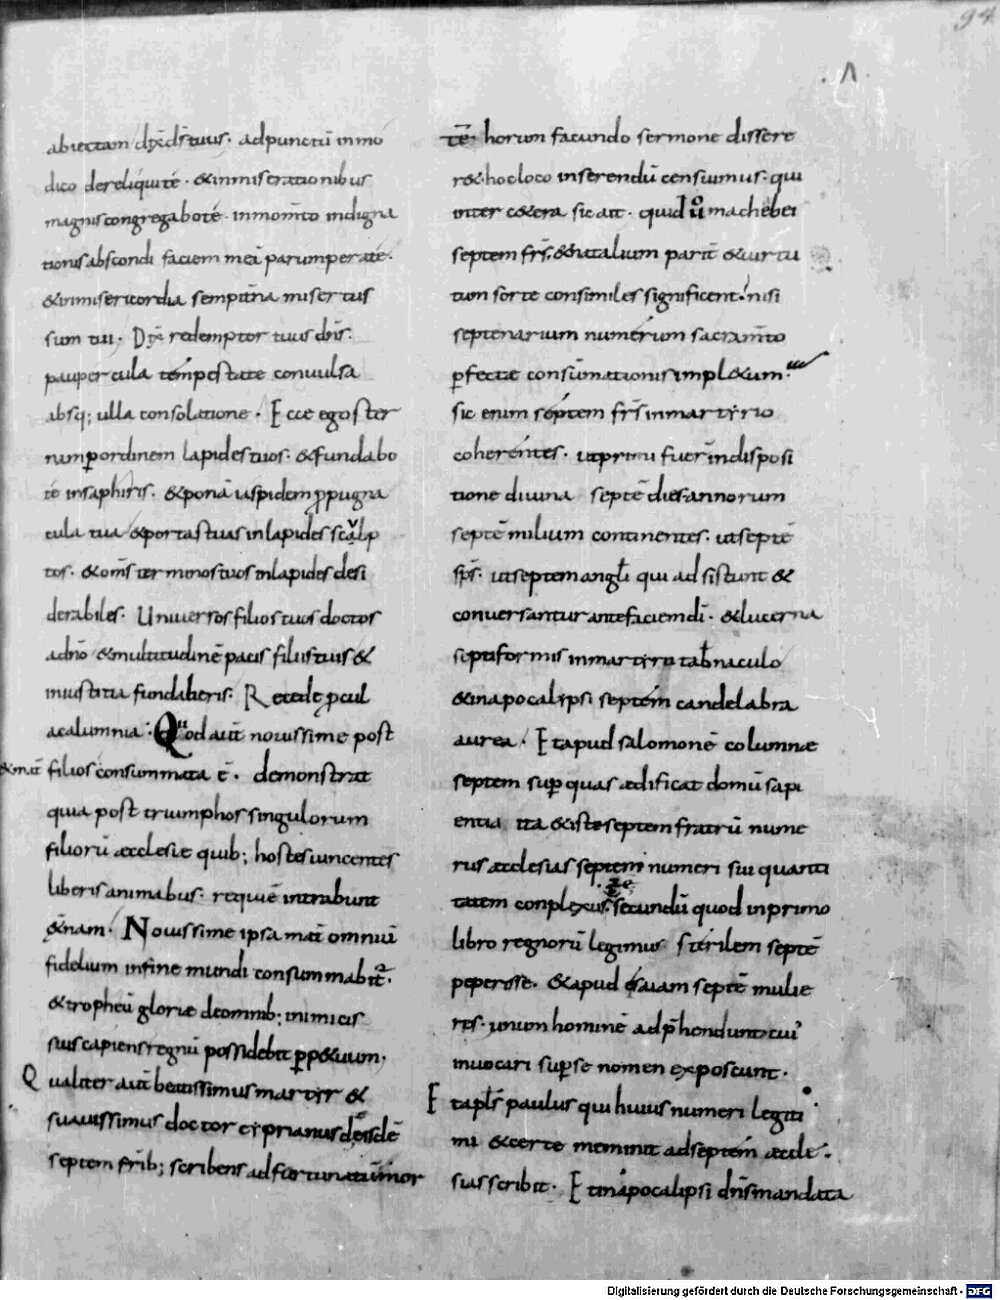 94
.Λ.
abiectam dix̄ ds̄ tuus. ad punctū inmo
dico dereliqui te. & in miserationibus
magnis congregabo te. in momto indigna
tionis abscondi faciem meā parumper a te.
& in misericordia sempitna misertus
sum tui. Dix̄ redemptor tuus dn̄s.
paupercula tempestate conuulsa
absq; ulla consolatione. Ecce ego ster
nam p ordinem lapides tuos. & fundabo
te in saphiris. & ponā iaspidem ppugna
cula tua & portas tuas in lapides scalp
tos. & om̄s terminos tuos in lapides desi
derabiles. Uniuersos filios tuos doctos
a dn̄o & multitudinē pacis filiis tuis &
in iustitia fundaberis. Recede pcul
a calumnia. Quod aūt nouissime post
& mat̄ filios consummata ē. demonstrat
quia post triumphos singulorum
filiorū æcclesiæ quib; hostes uincentes
liberis animabus. requiē intrabunt
&n̄am. Nouissime ipsa mat̄ omniū
fidelium in fine mundi consummabit̄.
& tropheū gloriæ de omnib; inimicis
suis capiens regnū possidebit pp&uum.
Qualiter aūt beatissimus martyr &
suauissimus doctor cyprianus de isdē
septem fr̄ib; scribens ad fortunatū mor
tē. horum facundo sermone dissere
r& hoc loco inserendū censuimus. qui
inter c&era sic ait. quid ū machebei
septem fr̄s. & natalium parit̄ & uirtu
tum sorte consimiles significent. nisi
septenarium numerum sacramto
pfectæ consūmationis impl&um.
sic enim septem fr̄s in martyrio
coherentes. ut primi fuer̄ in disposi
tione diuina septē dies annorum
septē milium continentes. ut septē
sp̄s. ut septem angli qui adsistunt &
conuersantur ante faciem dī. & lucerna
septiformis in martyrii tab̄naculo
& in apocalipsi septem candelabra
aurea. Et apud salomonē columnæ
septem sup quas ædificat domū sapi
entia ita & iste septem fratrū nume
rus æcclesias septem numeri sui quanti
tatem conplexus. secundū quod in primo
libro regnorū legimus sterilem septē
peperisse. & apud esaiam septē mulie
res. unum hominē adp̄hendunt cui'
inuocari sup se nomen exposcunt.
Et apls̄ paulus qui huius numeri legiti
mi & certe meminit ad septem æccle.
sias scribit. Et in apocalipsi dn̄s mandata
Digitalisierung gefördert durch die Deutsche Forschungsgemeinschaft - DFG